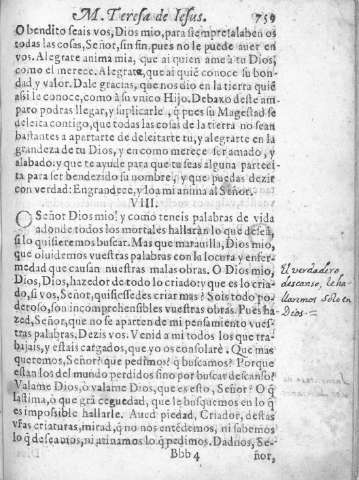 M. Teresa de Iesus. 759
O bendito seais vos, Dios mio, para siempre! alaben os
todas las cosas, Señor, sin fin, pues no le puede auer en
vos. Alegrate anima mia, que ai quien ame à tu Dios,
como el merece. Alegrate, que ai quiē conoce su bon-
dad y valor. Dale gracias, que nos dio en la tierra quiē
assi le conoce, como à su vnico Hijo. Debaxo deste am-
paro podras llegar, y suplicarle, q̃ pues su Magestad se
deleita contigo, que todas las cosas de la tierra no sean
bastantes a apartarte de deleitarte tu, y alegrarte en la
grandeza de tu Dios, y en como merece ser amado, y
alabado: y que te ayude para que tu seas alguna parteci-
ta para ser bendezido su nombre, y que puedas dezir
con verdad: Engrandece, y loa mi anima al Señor.
VIII.
O Señor Dios mio! y como teneis palabras de vida
adonde todos los mortales hallaràn lo que deseā,
si lo quisieremos buscar. Mas que marauilla, Dios mio,
que oluidemos vuestras palabras con la locura y enfer-
medad que causan nuestras malas obras. O Dios mio,
Dios, Dios, hazedor de todo lo criado! y que es lo cria-
do, si vos, Señor, quisiessedes criar mas? Sois todo po-
deroso, son incomprehensibles vuestras obras. Pues ha-
zed, Señor, que no se aparten de mi pensamiento vues-
tras palabras. Dezis vos. Venid a mi todos los que tra-
bajais, y estais cargados, que yo os consolarè. Que mas
queremos, Señor? que pedimos? q̃ buscamos? Porque
estan los del mundo perdidos sino por buscar descanso?
Valame Dios, ò valame Dios, que es esto, Señor? O q̃
lastima, ò que grā ceguedad, que le busquemos en lo q̃
es impossible hallarle. Aued piedad, Criador, destas
vr̃as criaturas, mirad, q̃ no nos entēdemos, ni sabemos
lo q̃ deseamos, ni atinamos lo q̃ pedimos. Dadnos, Se-
Bbb 4 ñor,
El verdadero
descanso, le ha-
llaremos solo en
Dios.=